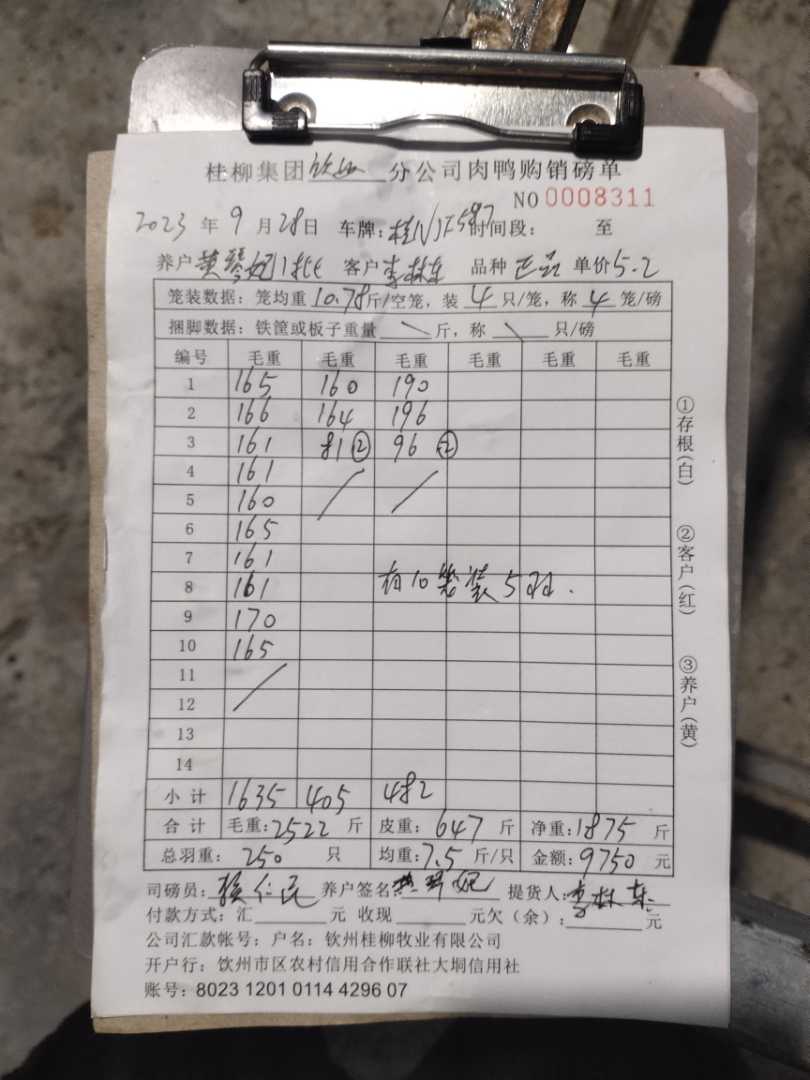 桂柳集团钦州分公司肉鸭购销磅单
NO 0008311
2023年9月28日 车牌:桂N 587 时间段: 至
养户黄琴妃1批 客户李林东 品种 单价5.2
笼装数据:笼均重10.78斤/空笼,装4只/笼,称4笼/磅
捆脚数据:铁筐或板子重量\斤,称\只/磅
编号 毛重 毛重 毛重 毛重 毛重 毛重
1 165 160 190
2 166 164 196
3 161 81② 96②
4 161
5 160
6 165
7 161
8 161 有10笼装5只.
9 170
10 165
11
12
13
14
小计 1635 405 482
合计 毛重:2522斤 皮重:647斤 净重:1875斤
总羽重:250只 均重:7.5斤/只 金额:9750元
司磅员: 仁民 养户签名:黄琴妃 提货人:李林东
付款方式:汇 元 收现 元欠(余): 元
公司汇款帐号:户名:钦州桂柳牧业有限公司
开户行:饮州市区农村信用合作联社大垌信用社
账号:8023 1201 0114 4296 07
①存根(白)
②客户(红)
③养户(黄)